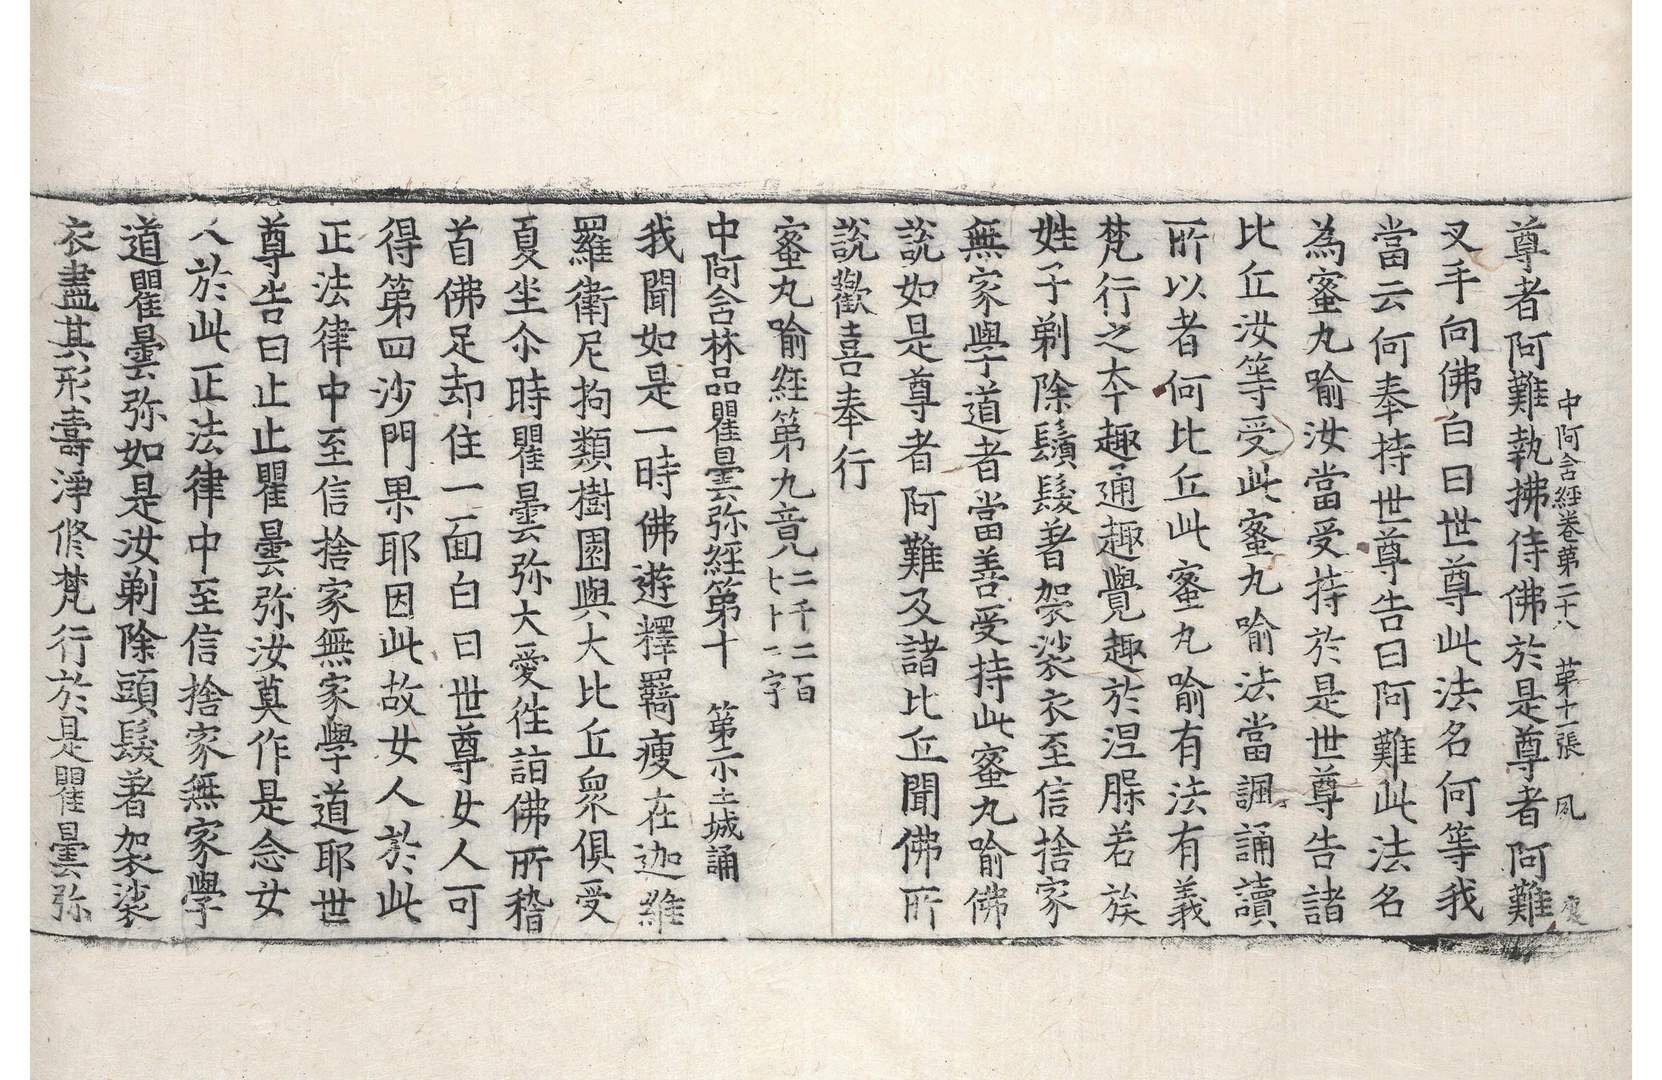 中阿含經卷第二十八　第十一張　夙
尊者阿難執拂侍佛於是尊者阿難
叉手向佛白曰世尊此法名何等我
當云何奉持世尊告曰阿難此法名
為蜜丸喻汝當受持於是世尊告諸
比丘汝等受此蜜丸喻法當諷誦讀
所以者何比丘此蜜丸喻有法有義
梵行之本趣通趣覺趣於涅槃若族
姓子剃除鬚髮著袈裟衣至信捨家
無家學道者當善受持此蜜丸喻佛
說如是尊者阿難及諸比丘聞佛所
說歡喜奉行
蜜丸喻經第九竟 二千二百七十一字
中阿含林品瞿曇弥經第十　第二小土城誦
我聞如是一時佛遊釋羈瘦在迦維
羅衛尼拘類樹園與大比丘衆俱受
夏坐尒時瞿曇弥大愛往詣佛所稽
首佛足却住一面白曰世尊女人可
得第四沙門果耶因此故女人於此
正法律中至信捨家無家學道耶世
尊告曰止止瞿曇弥汝莫作是念女
人於此正法律中至信捨家無家學
道瞿曇弥如是汝剃除頭髮著袈裟
衣盡其形壽淨修梵行於是瞿曇弥